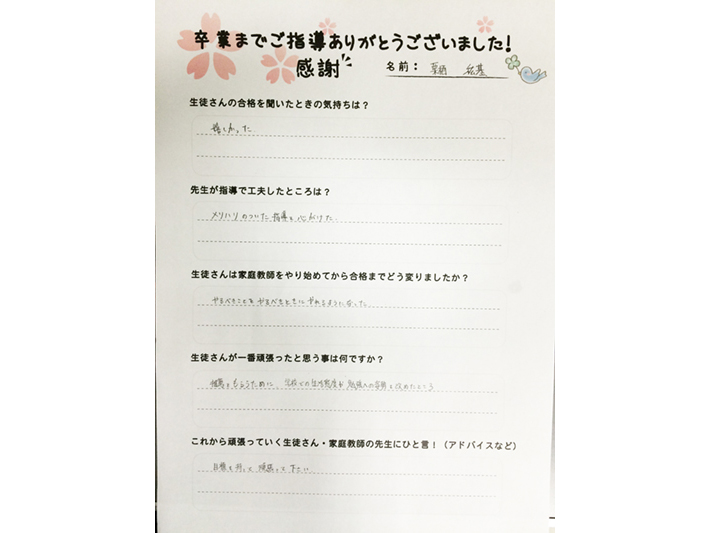 卒業までご指導ありがとうございました!
感謝
名前:
生徒さんの合格を聞いたときの気持ちは?
先生が指導で工夫したところは?
メリハリのついた指導を心がけた.
生徒さんは家庭教師をやり始めてから合格までどう変りましたか?
やるべきことをやるべきときにやれるようになった.
生徒さんが一番頑張ったと思う事は何ですか?
推薦をもらうために、学校での生活態度や勉強への姿勢を改めたところ
これから頑張っていく生徒さん・家庭教師の先生にひと言!(アドバイスなど)
目標を持って頑張って下さい.